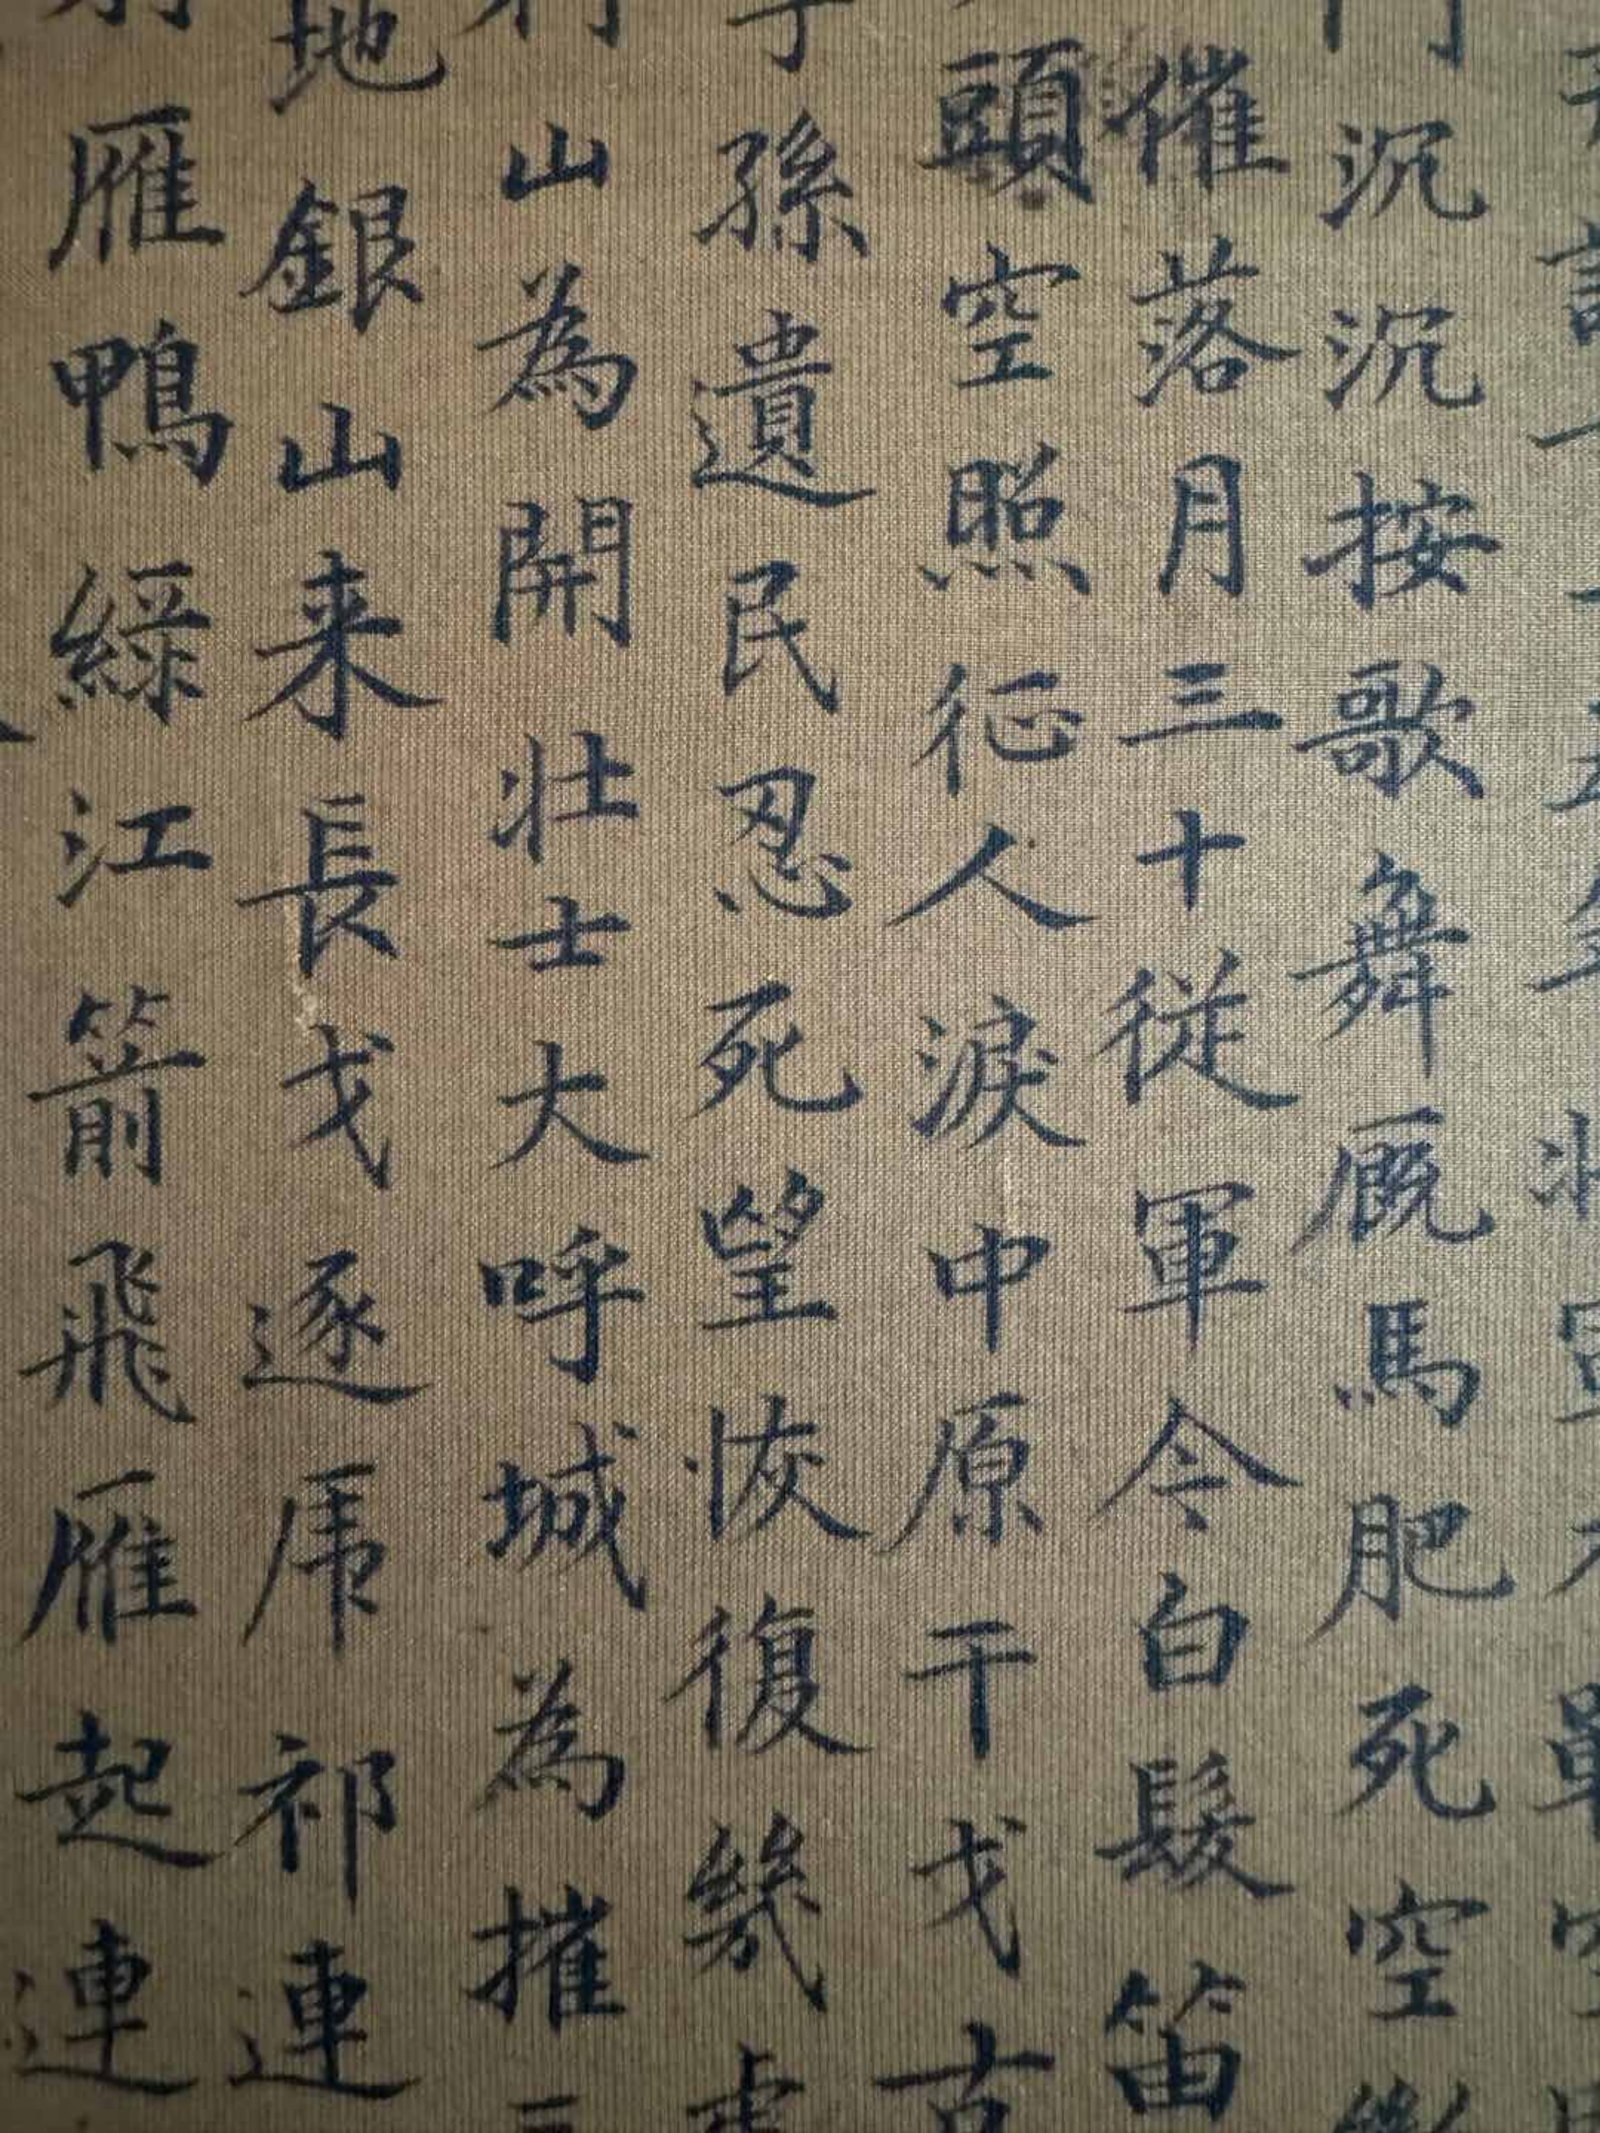 沉沉按歌舞厩馬肥死空
催落月三十従軍今白髪笛
頭空照征人淚中原干戈古
孫遺民忍死望恢復幾處
山為開壯士大呼城為摧
地銀山来長戈逐虎祁連
雁鴨綠江箭飛雁起連